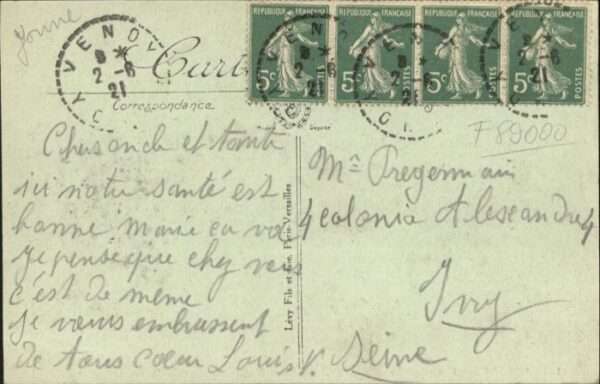 Yonne
VENOY
8 *
2-6
21
Carte
Correspondance
RÉPUBLIQUE FRANÇAISE
5c
POSTES
RÉPUBLIQUE FRANÇAISE
5c
POSTES
RÉPUBLIQUE FRANÇAISE
5c
POSTES
RÉPUBLIQUE FRANÇAISE
5c
POSTES
F 89000
Cher oncle et tante
ici notre santé est
bonne Marie ca va
Je pense que chez vous
c'est de même
je vous embrassent
de tous cœur Louis
Lévy Fils et Cie, Paris-Versailles
Mr Pregermain
4 colonia Alescandre 4
Ivry
s. Seine